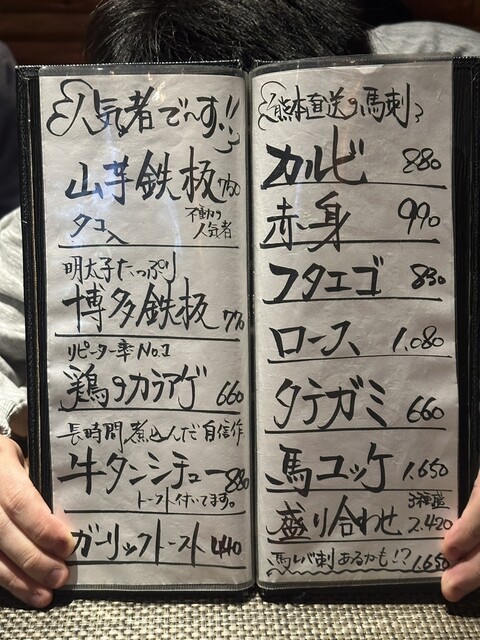 人気者で〜す!!
山芋鉄板 760
タコ入 不動の
人気者
明太子たっぷり
博多鉄板 770
リピーター率No.1
鶏のカラアゲ 660
長時間煮込んだ自信作
牛タンシチュー 880
トースト付いてます。
ガーリックトースト 440
熊本直送の馬刺
カルビ 880
赤身 990
フタエゴ 830
ロース 1,080
タテガミ 660
馬ユッケ 1,650
3種盛
盛り合わせ 2,420
馬レバ刺あるかも!? 1,650